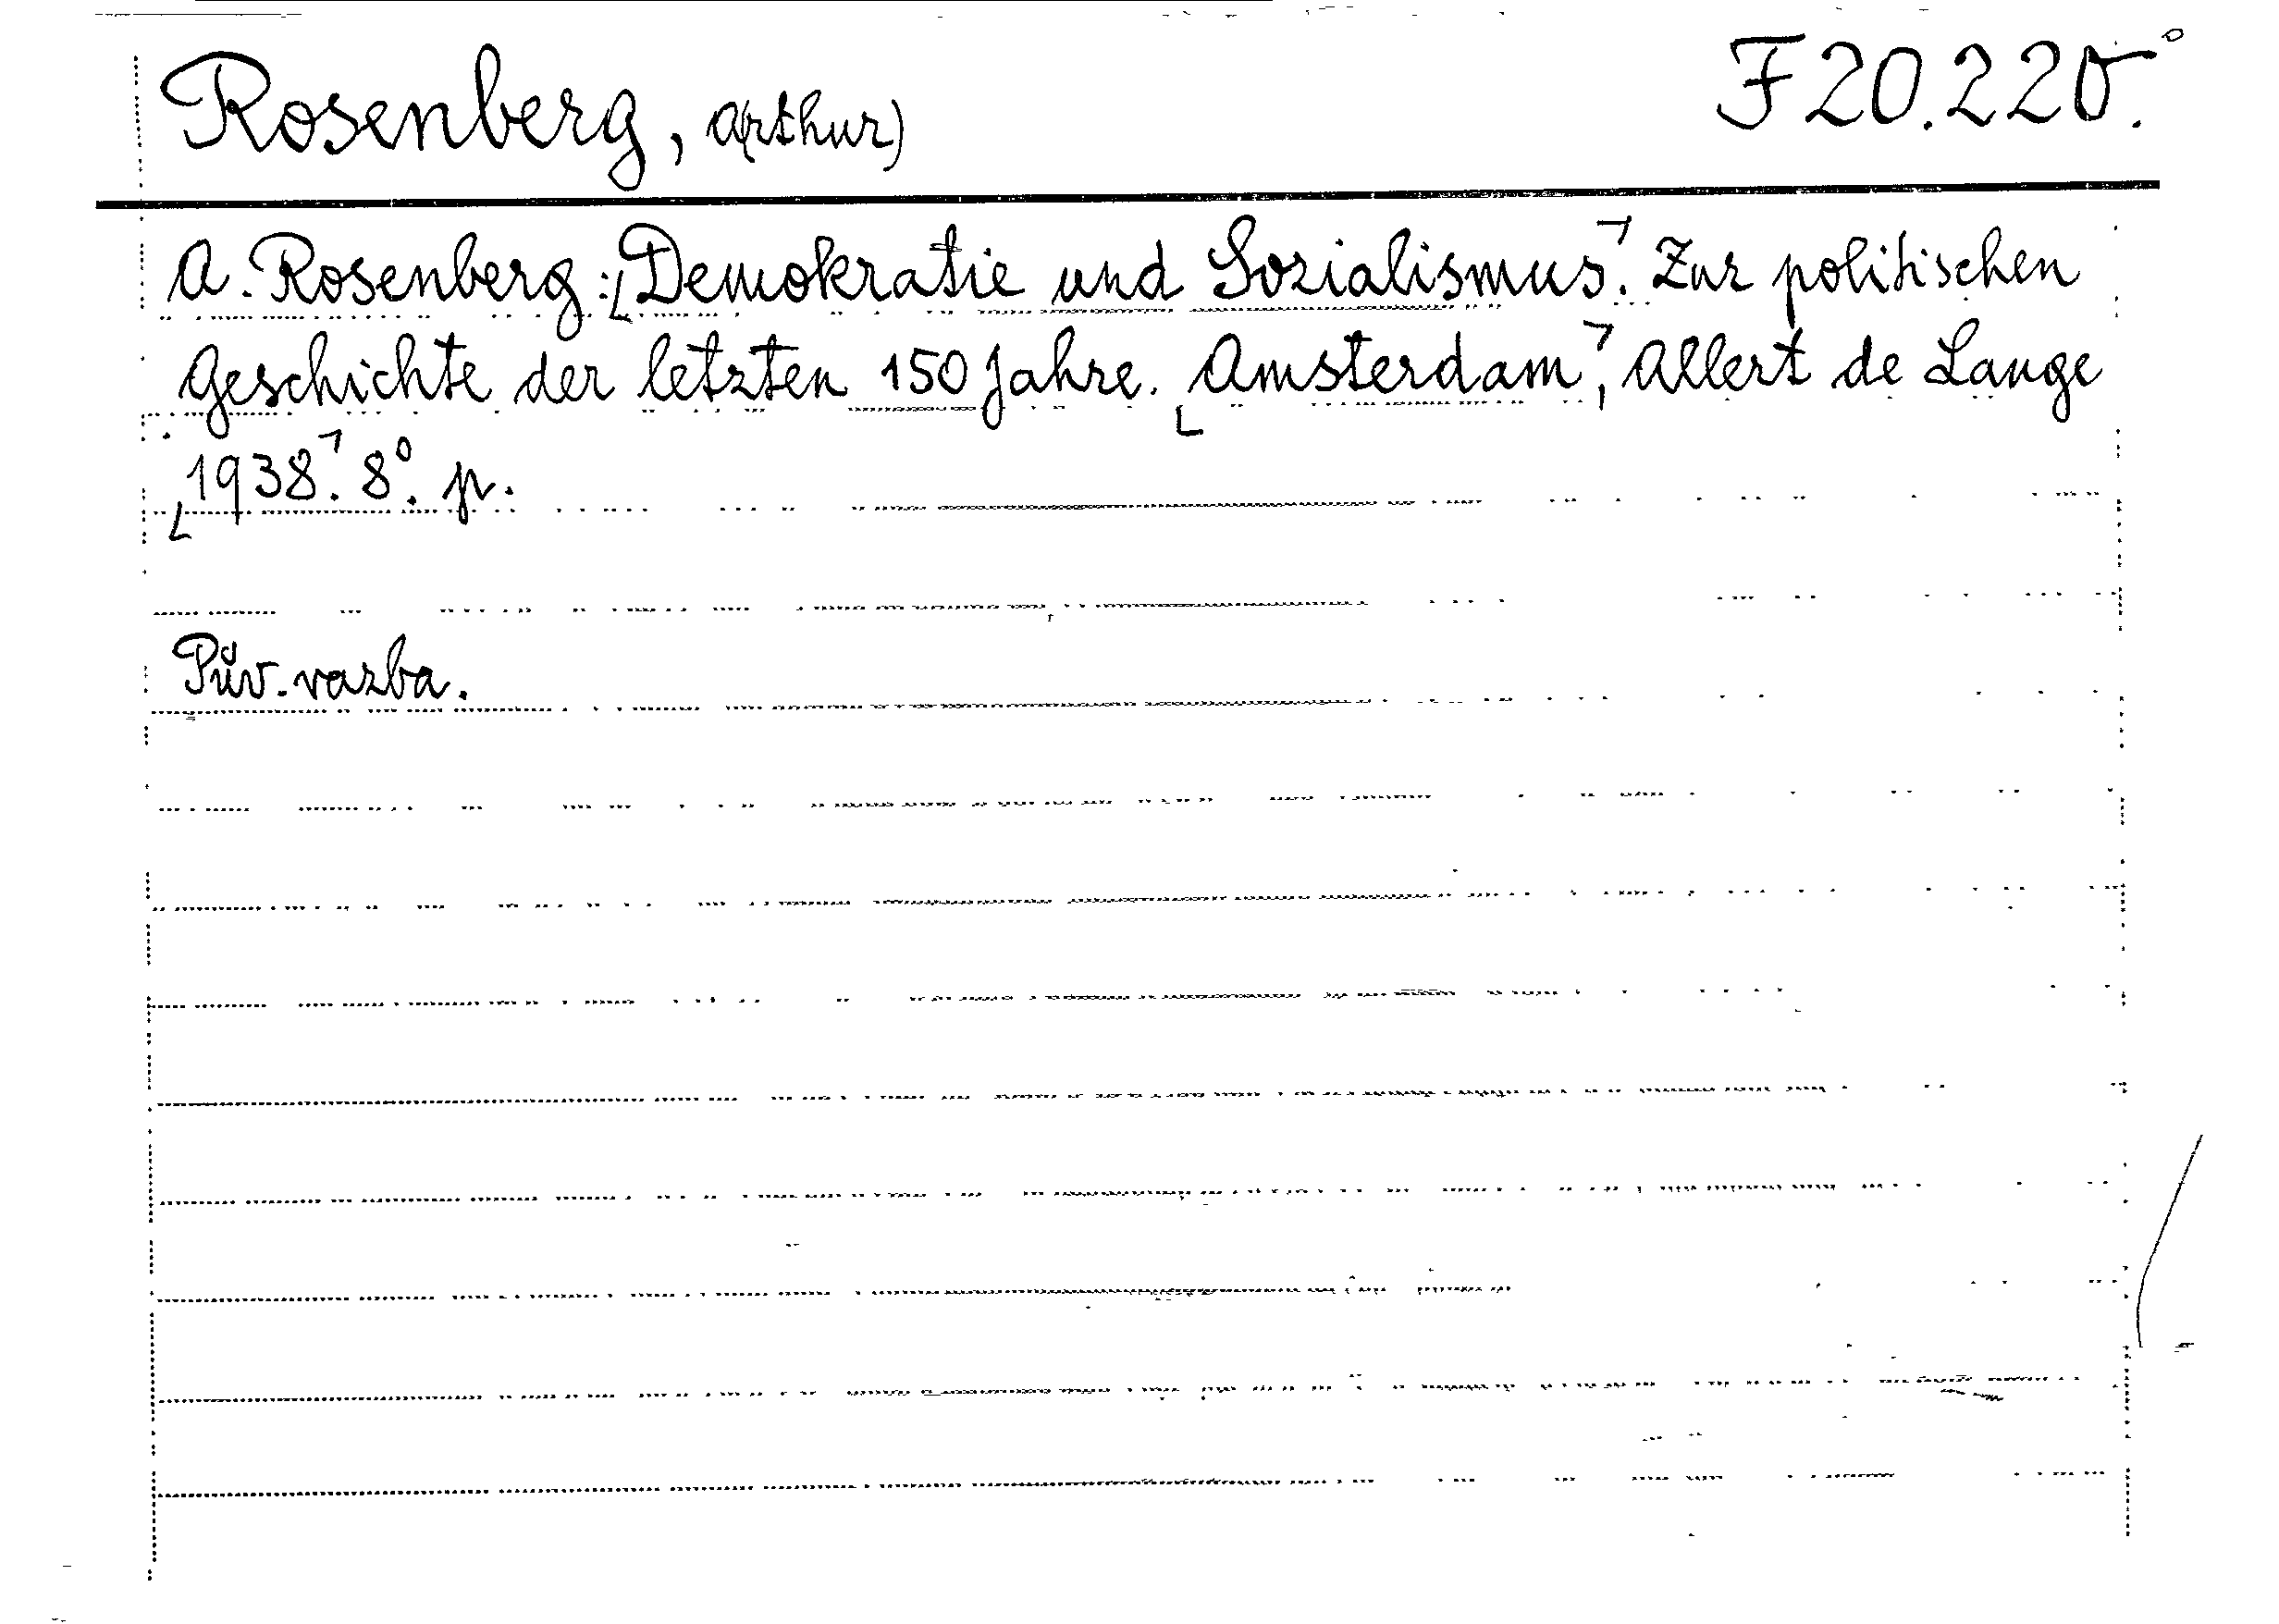 Rosenberg, A(rthur)
F 20.220.
A. Rosenberg: ⌊Demokratie und Sozialismus⌉. Zur politischen
Geschichte der letzten 150 Jahre. ⌊Amsterdam⌉, Allert de Lange
⌊1938⌉. 8°. p.
Pův. vazba.